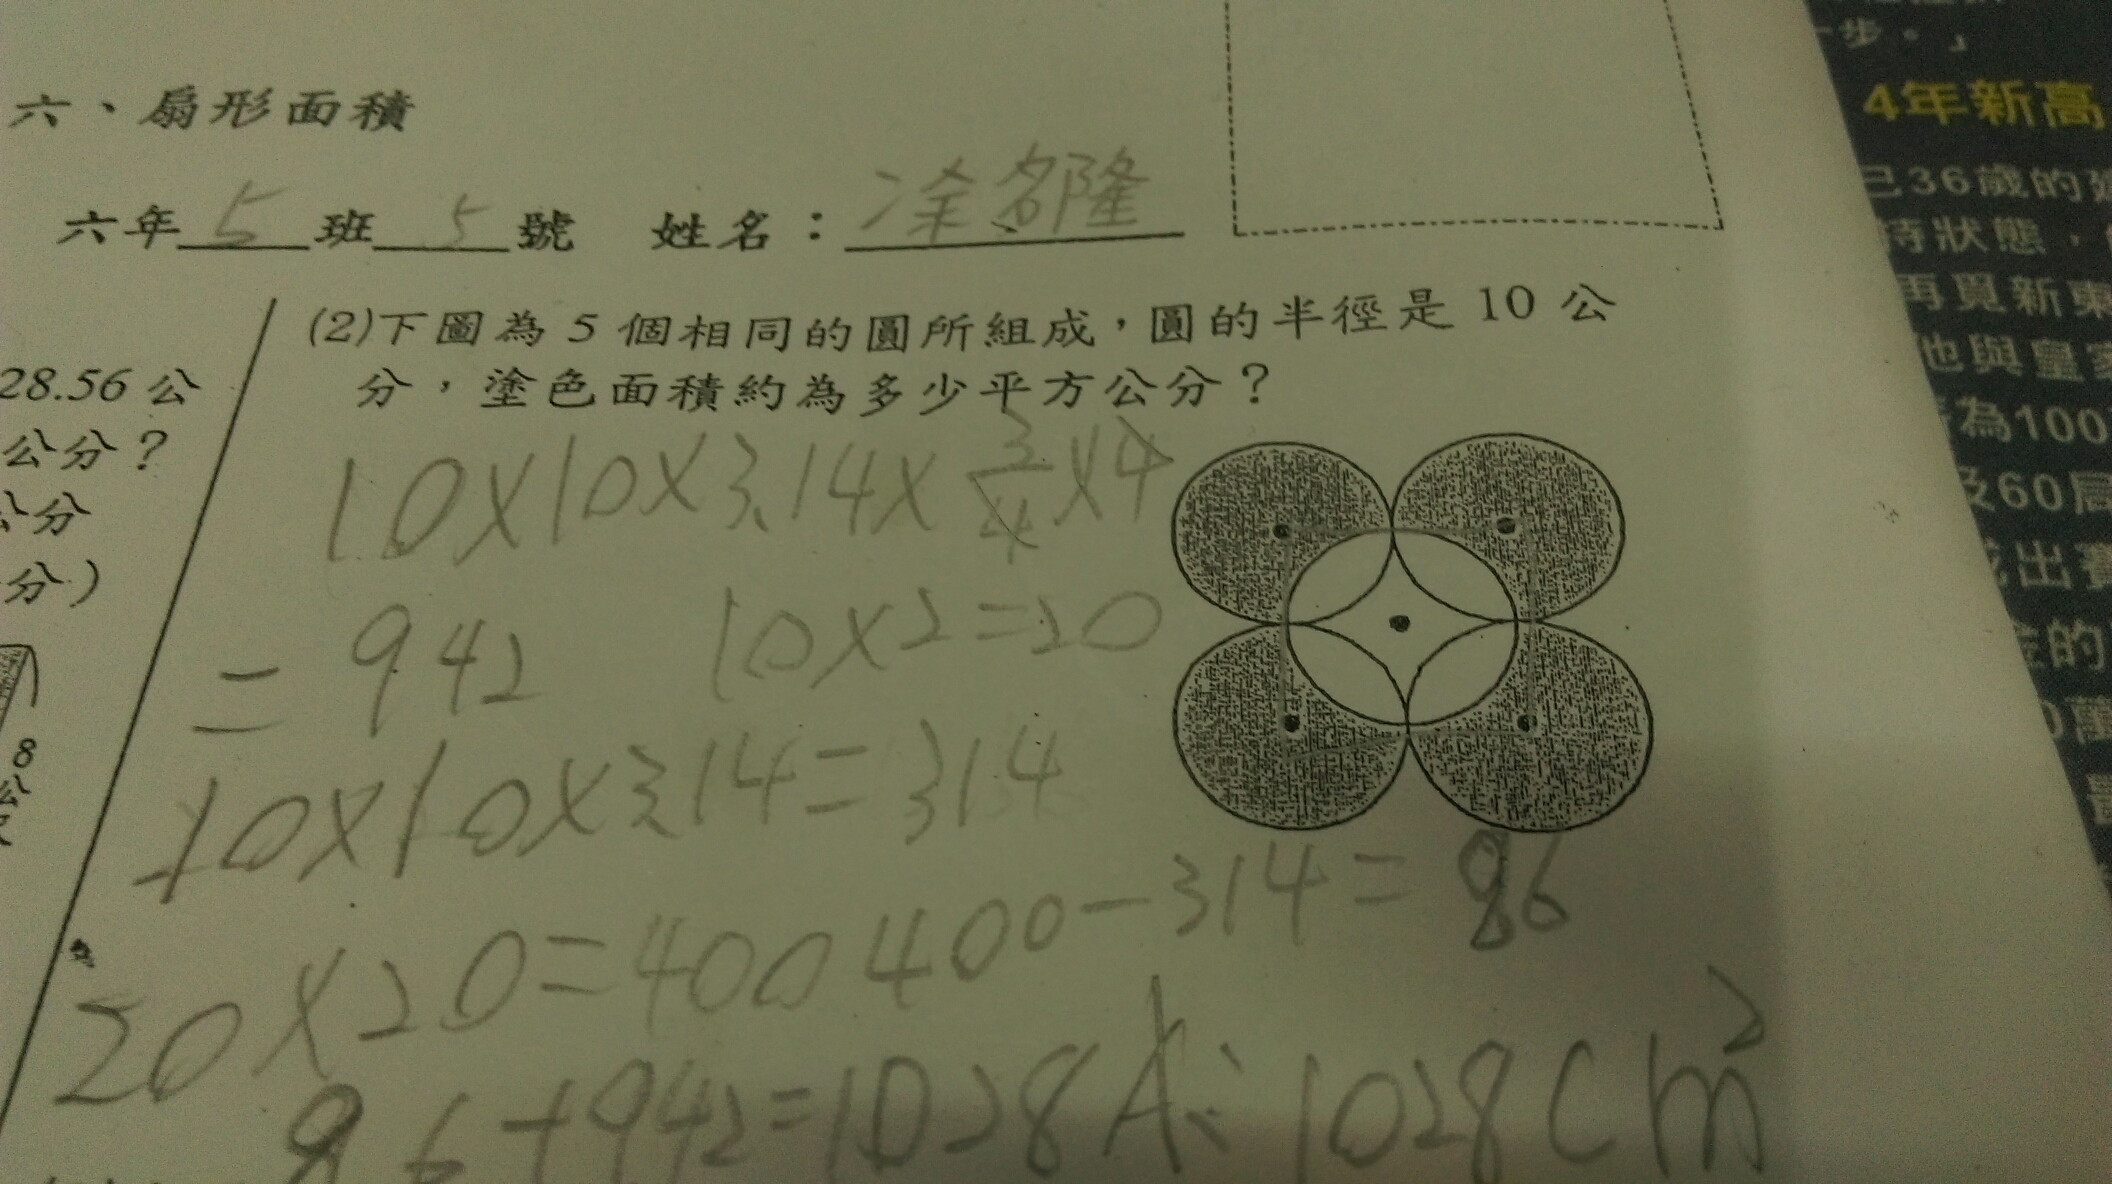 六、扇形面積
六年 5 班 5 號 姓名：涂名隆
(2)下圖為 5 個相同的圓所組成，圓的半徑是 10 公
分，塗色面積約為多少平方公分？
10×10×3.14×3/4×4
=942 10×2=20
10×10×3.14=314
20×20=400 400-314=86
86+942=1028 A:1028cm²
28.56 公
公分？
公分
分)
8
公
一步。」
4年新高
已36歲的
時狀態，
再見新東
他與皇家
為100
及60局
出賽
金的
0萬
最